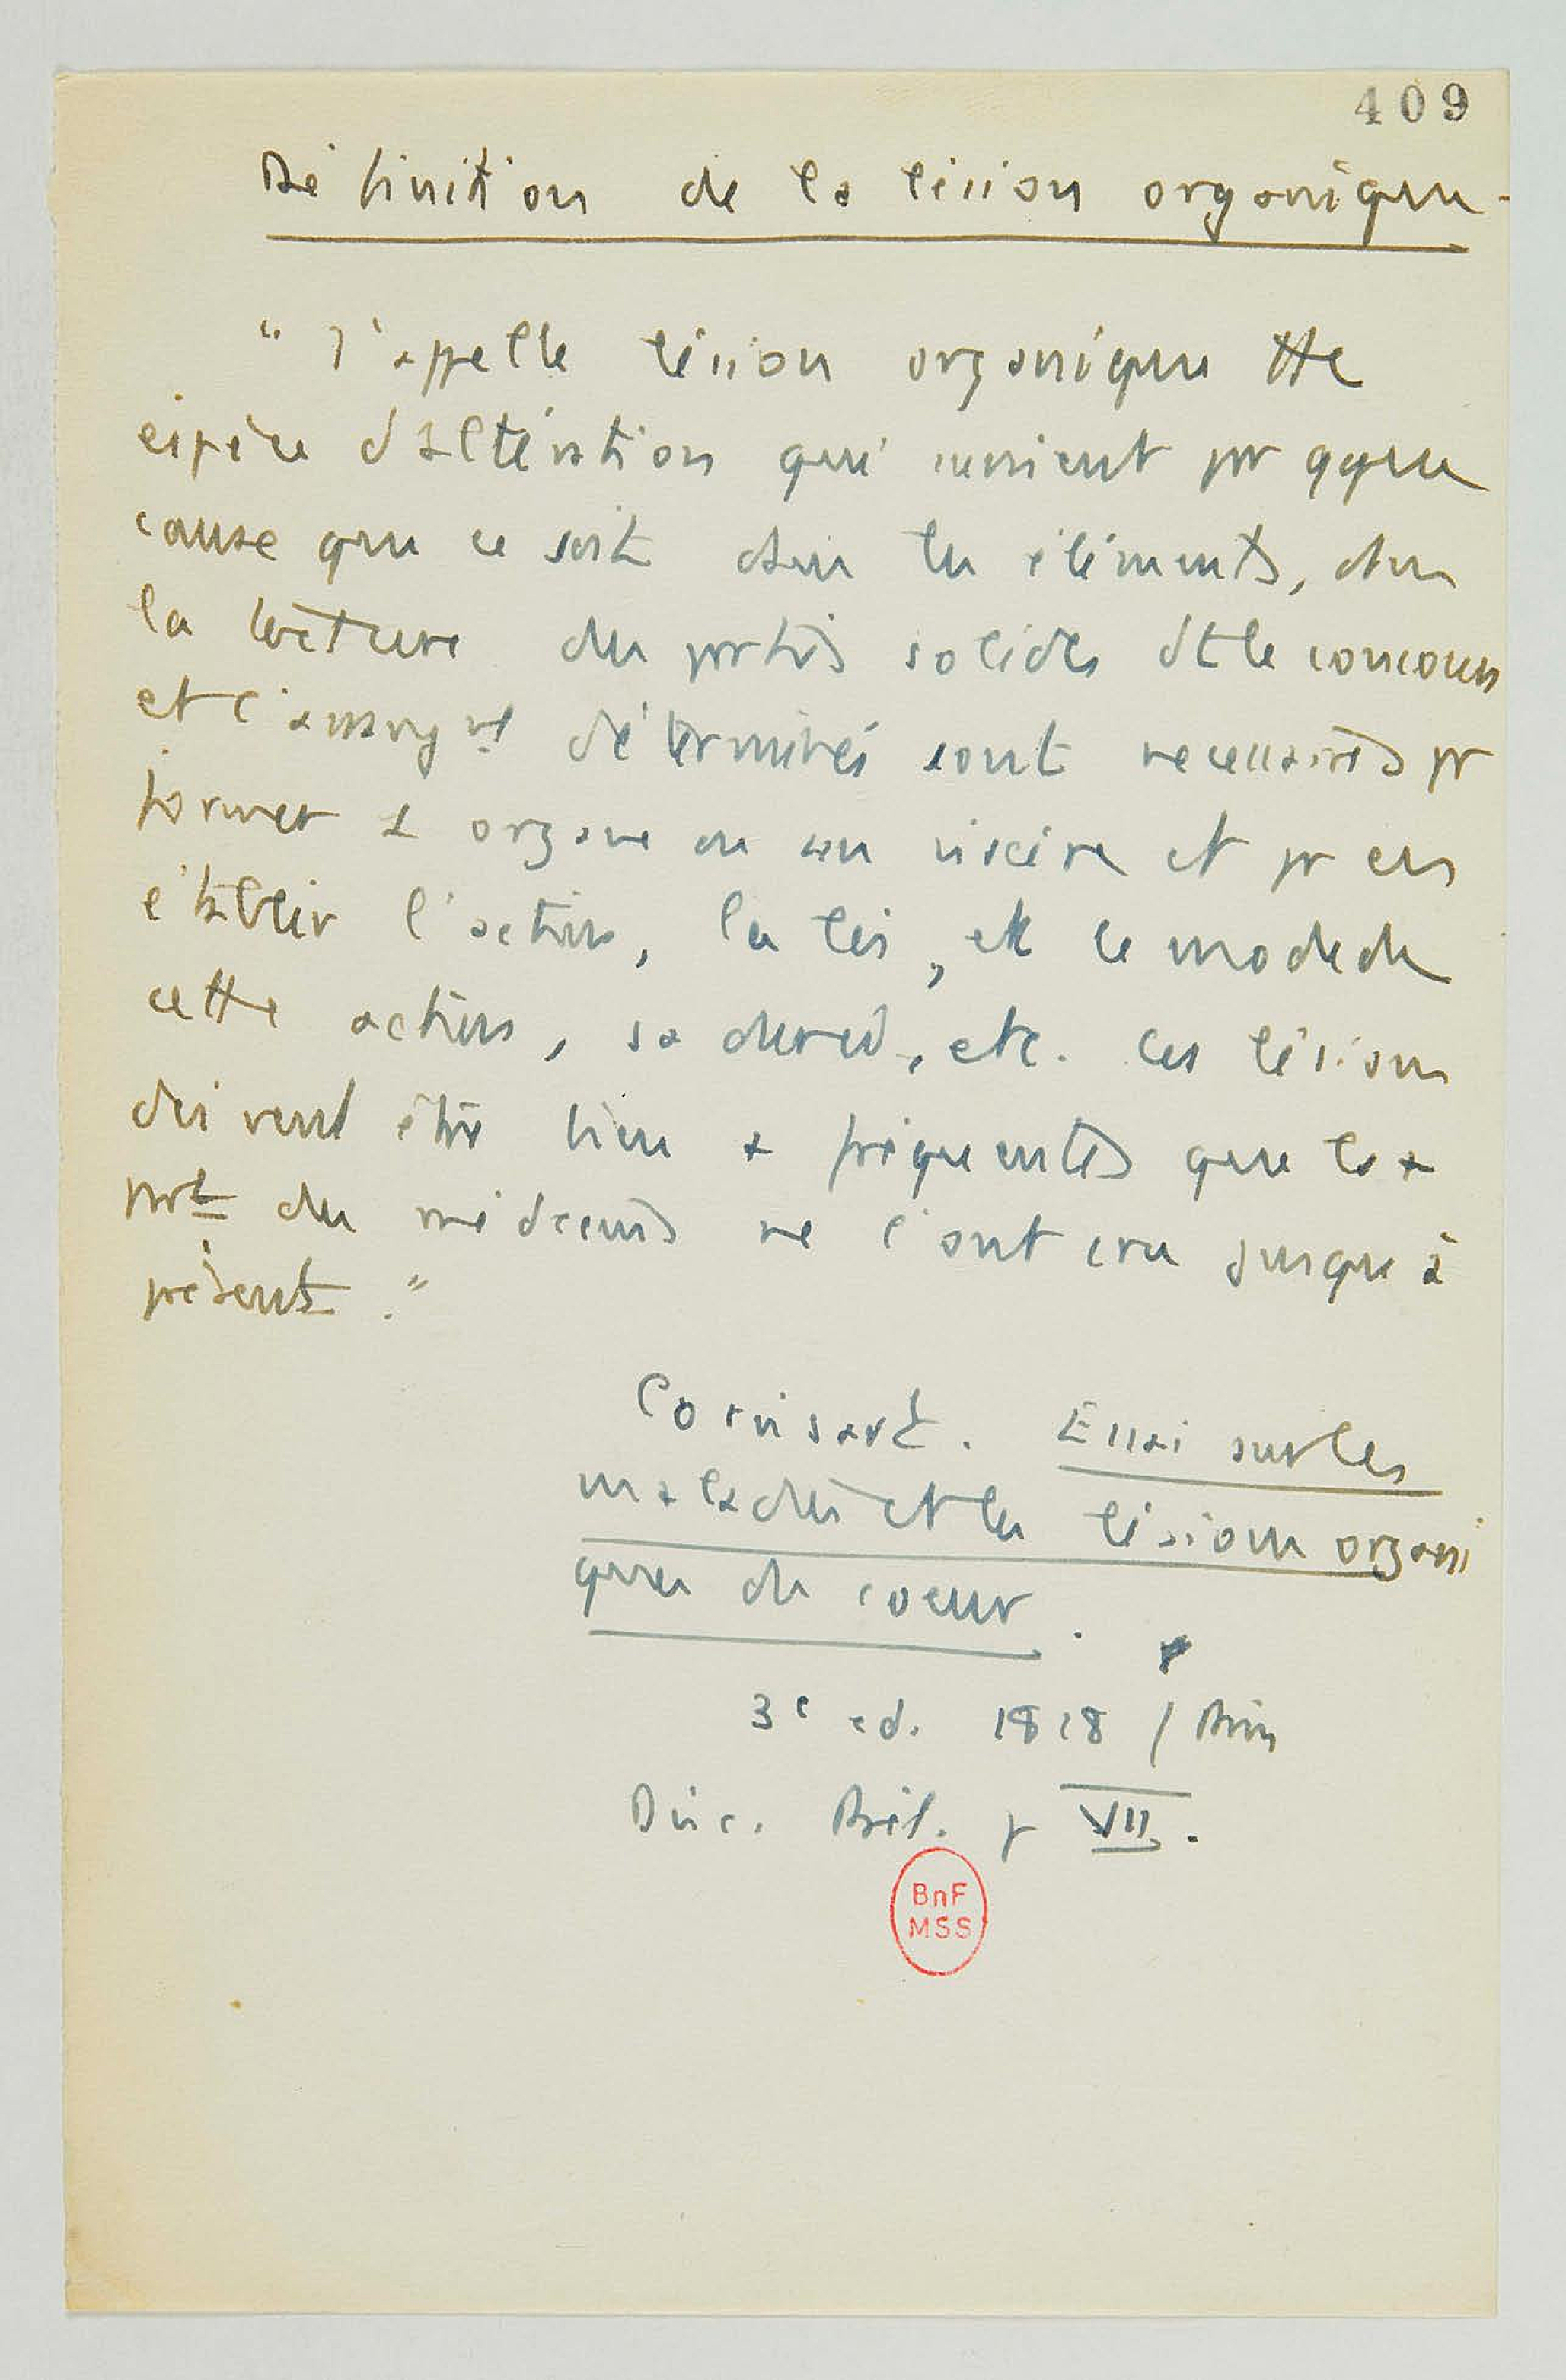 409
Définition de la lésion organique.
" J'appelle lésion organique tte
espèce d'altération qui survient par qque
cause que ce soit dans les éléments, dans
la texture des parties solides dt le concours
et l' déterminés sont necessaires pr
former 1 organe ou un viscère et pr en
établir l'action, les lois, et le mode de
cette action, sa durée, etc. Ces lésions
doivent être bien + fréquentes que la +
part des médecins ne l'ont cru jusqu'à
présent."
Corvisart. Essai sur les
maladies et les lésions organi
ques du coeur.
3e ed. 1818 /
Disc. Prél. p VII.
BnF
MSS